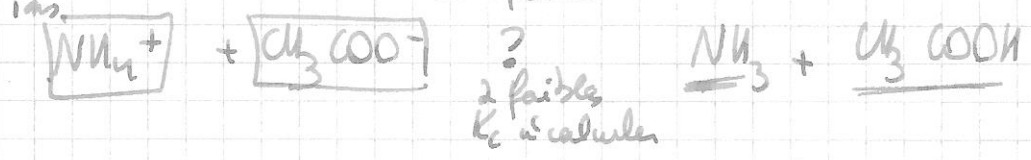 ions.
NH₄⁺ + CH₃COO⁻ ? NH₃ + CH₃COOH
2 faibles
Kc à calculer